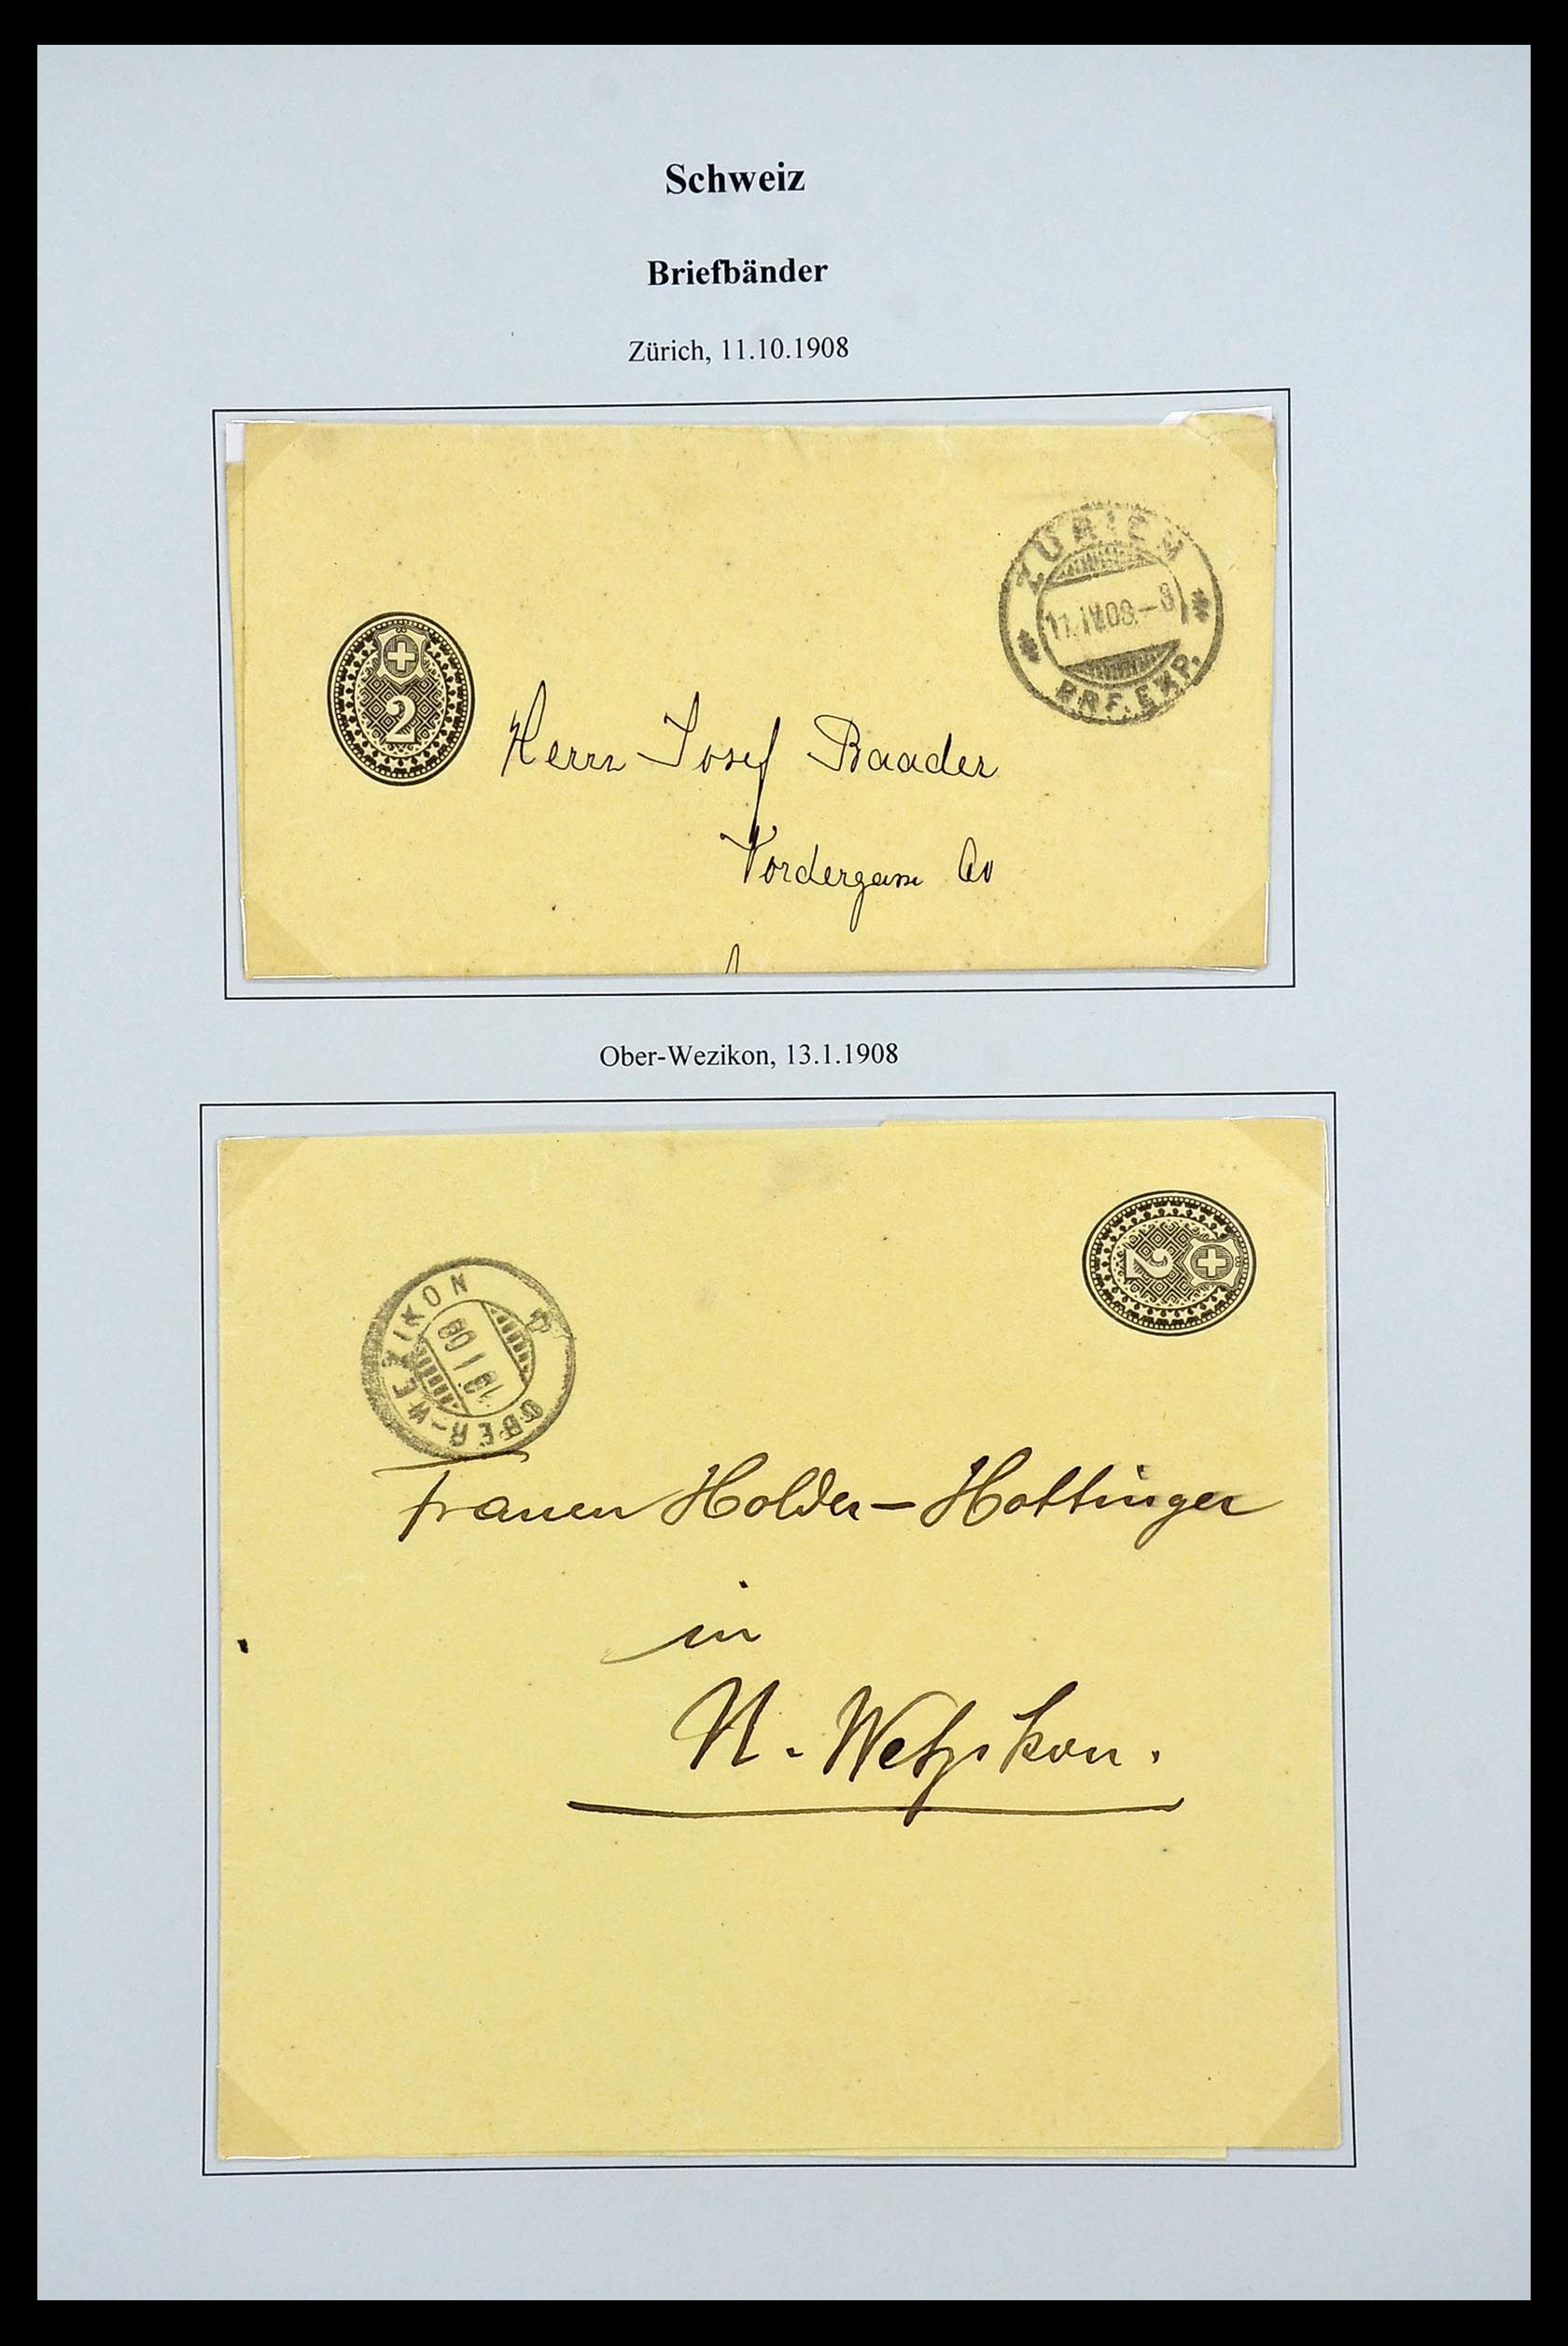 Schweiz
Briefbänder
Zürich, 11.10.1908
ZÜRICH
BRF. EXP.
2
Herrn Josef Baader
Vordergasse
Ober-Wezikon, 13.1.1908
2
OBER-WEZIKON
Frauen Holder-Hottinger
in
U. Wetzikon.